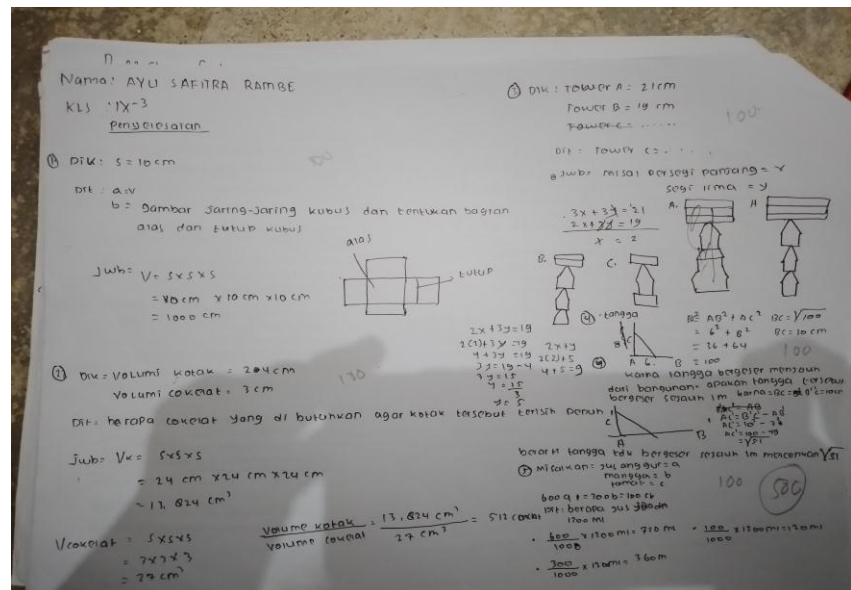 Nama: AYU SAFITRA RAMBE
KLS : IX-3
Penyelesaian
① Dik: s = 10 cm
100
Dit : a = v
b = gambar jaring-jaring kubus dan tentukan bagian
alas dan tutup kubus
alas
tutup
Jwb= V = s x s x s
= 10 cm x 10 cm x 10 cm
= 1000 cm
② Dik = Volumi kotak = 24 cm
Volumi cokelat = 3 cm
Dit= berapa cokelat yang di butuhkan agar kotak tersebut terisih penuh
Jwb= Vk = s x s x s
= 24 cm x 24 cm x 24 cm
= 13.824 cm³
Vcokelat = s x s x s
= 3 x 3 x 3
= 27 cm³
Volume kotak / Volume cokelat = 13.824 cm³ / 27 cm³ = 512 coklat
③ Dik : Tower A = 21 cm
Tower B = 19 cm
Tower C = ......
100
Dit : Tower C = . . . .
Jwb= misal persegi panjang = x
segi lima = y
3x + 3y = 21
2x + 3y = 19
x = 2
A.
A
B.
C.
2x + 3y = 19
2(2) + 3y = 19
4 + 3y = 19
3y = 19 - 4
3y = 15
y = 15/3
y = 5
2x + y
2(2) + 5
4 + 5 = 9
④ tangga
A 6. B
BC² = AB² + AC²
= 6² + 8²
= 36 + 64
= 100
BC = √100
BC = 10 cm
100
karna tangga bergeser menjauh
dari bangunan. apakah tangga tersebut
bergeser sejauh 1m
C
A
B
berarti tangga tdk bergeser sejauh 1m √51
⑦ Misalkan : jus anggur = a
mangga = b
tomat = c
100
500
Dit: berapa jus
1200 ml
600/1000 x 1200 ml = 720 ml
100/1000 x 1200 ml = 120 ml
300/1000 x 1200 ml = 360 m